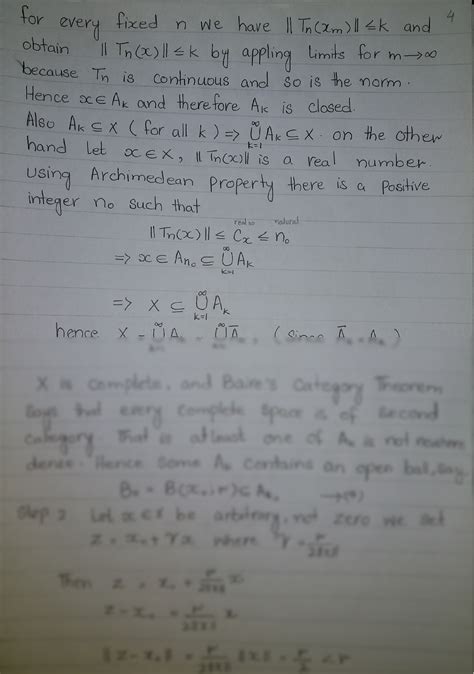 4
for every fixed n we have ‖Tn(xm)‖ ≤ k and
obtain ‖Tn(x)‖ ≤ k by appling limits for m→∞
because Tn is continuous and so is the norm.
Hence x∈Ak and therefore Ak is closed.
Also Ak ⊆ X (for all k) => ∞∪k=1 Ak ⊆ X. on the other
hand let x∈X, ‖Tn(x)‖ is a real number.
using Archimedean Property there is a positive
integer no such that
real no natural
‖Tn(x)‖ ≤ Cx ≤ no
=> x∈Ano ⊆ ∞∪k=1 Ak
=> X ⊆ ∞∪k=1 Ak
hence X = ∞∪k=1 Ak = ∞∪k=1 Āk, (since Āk = Ak)
X is complete, and Baire's Category Theorem
says that every complete space is of second
category. That is atleast one of Ak is not nowhere
dense. Hence some Ak contains an open ball, say
Bo = B(xo,r) ⊂ Ako →(*)
Step 2 Let x∈X be arbitrary, not zero we set
z = xo + γx where γ = r/2‖x‖
Then z = xo + r/2‖x‖ x
z - xo = r/2‖x‖ x
‖z - xo‖ = r/2‖x‖ ‖x‖ = r/2 < r